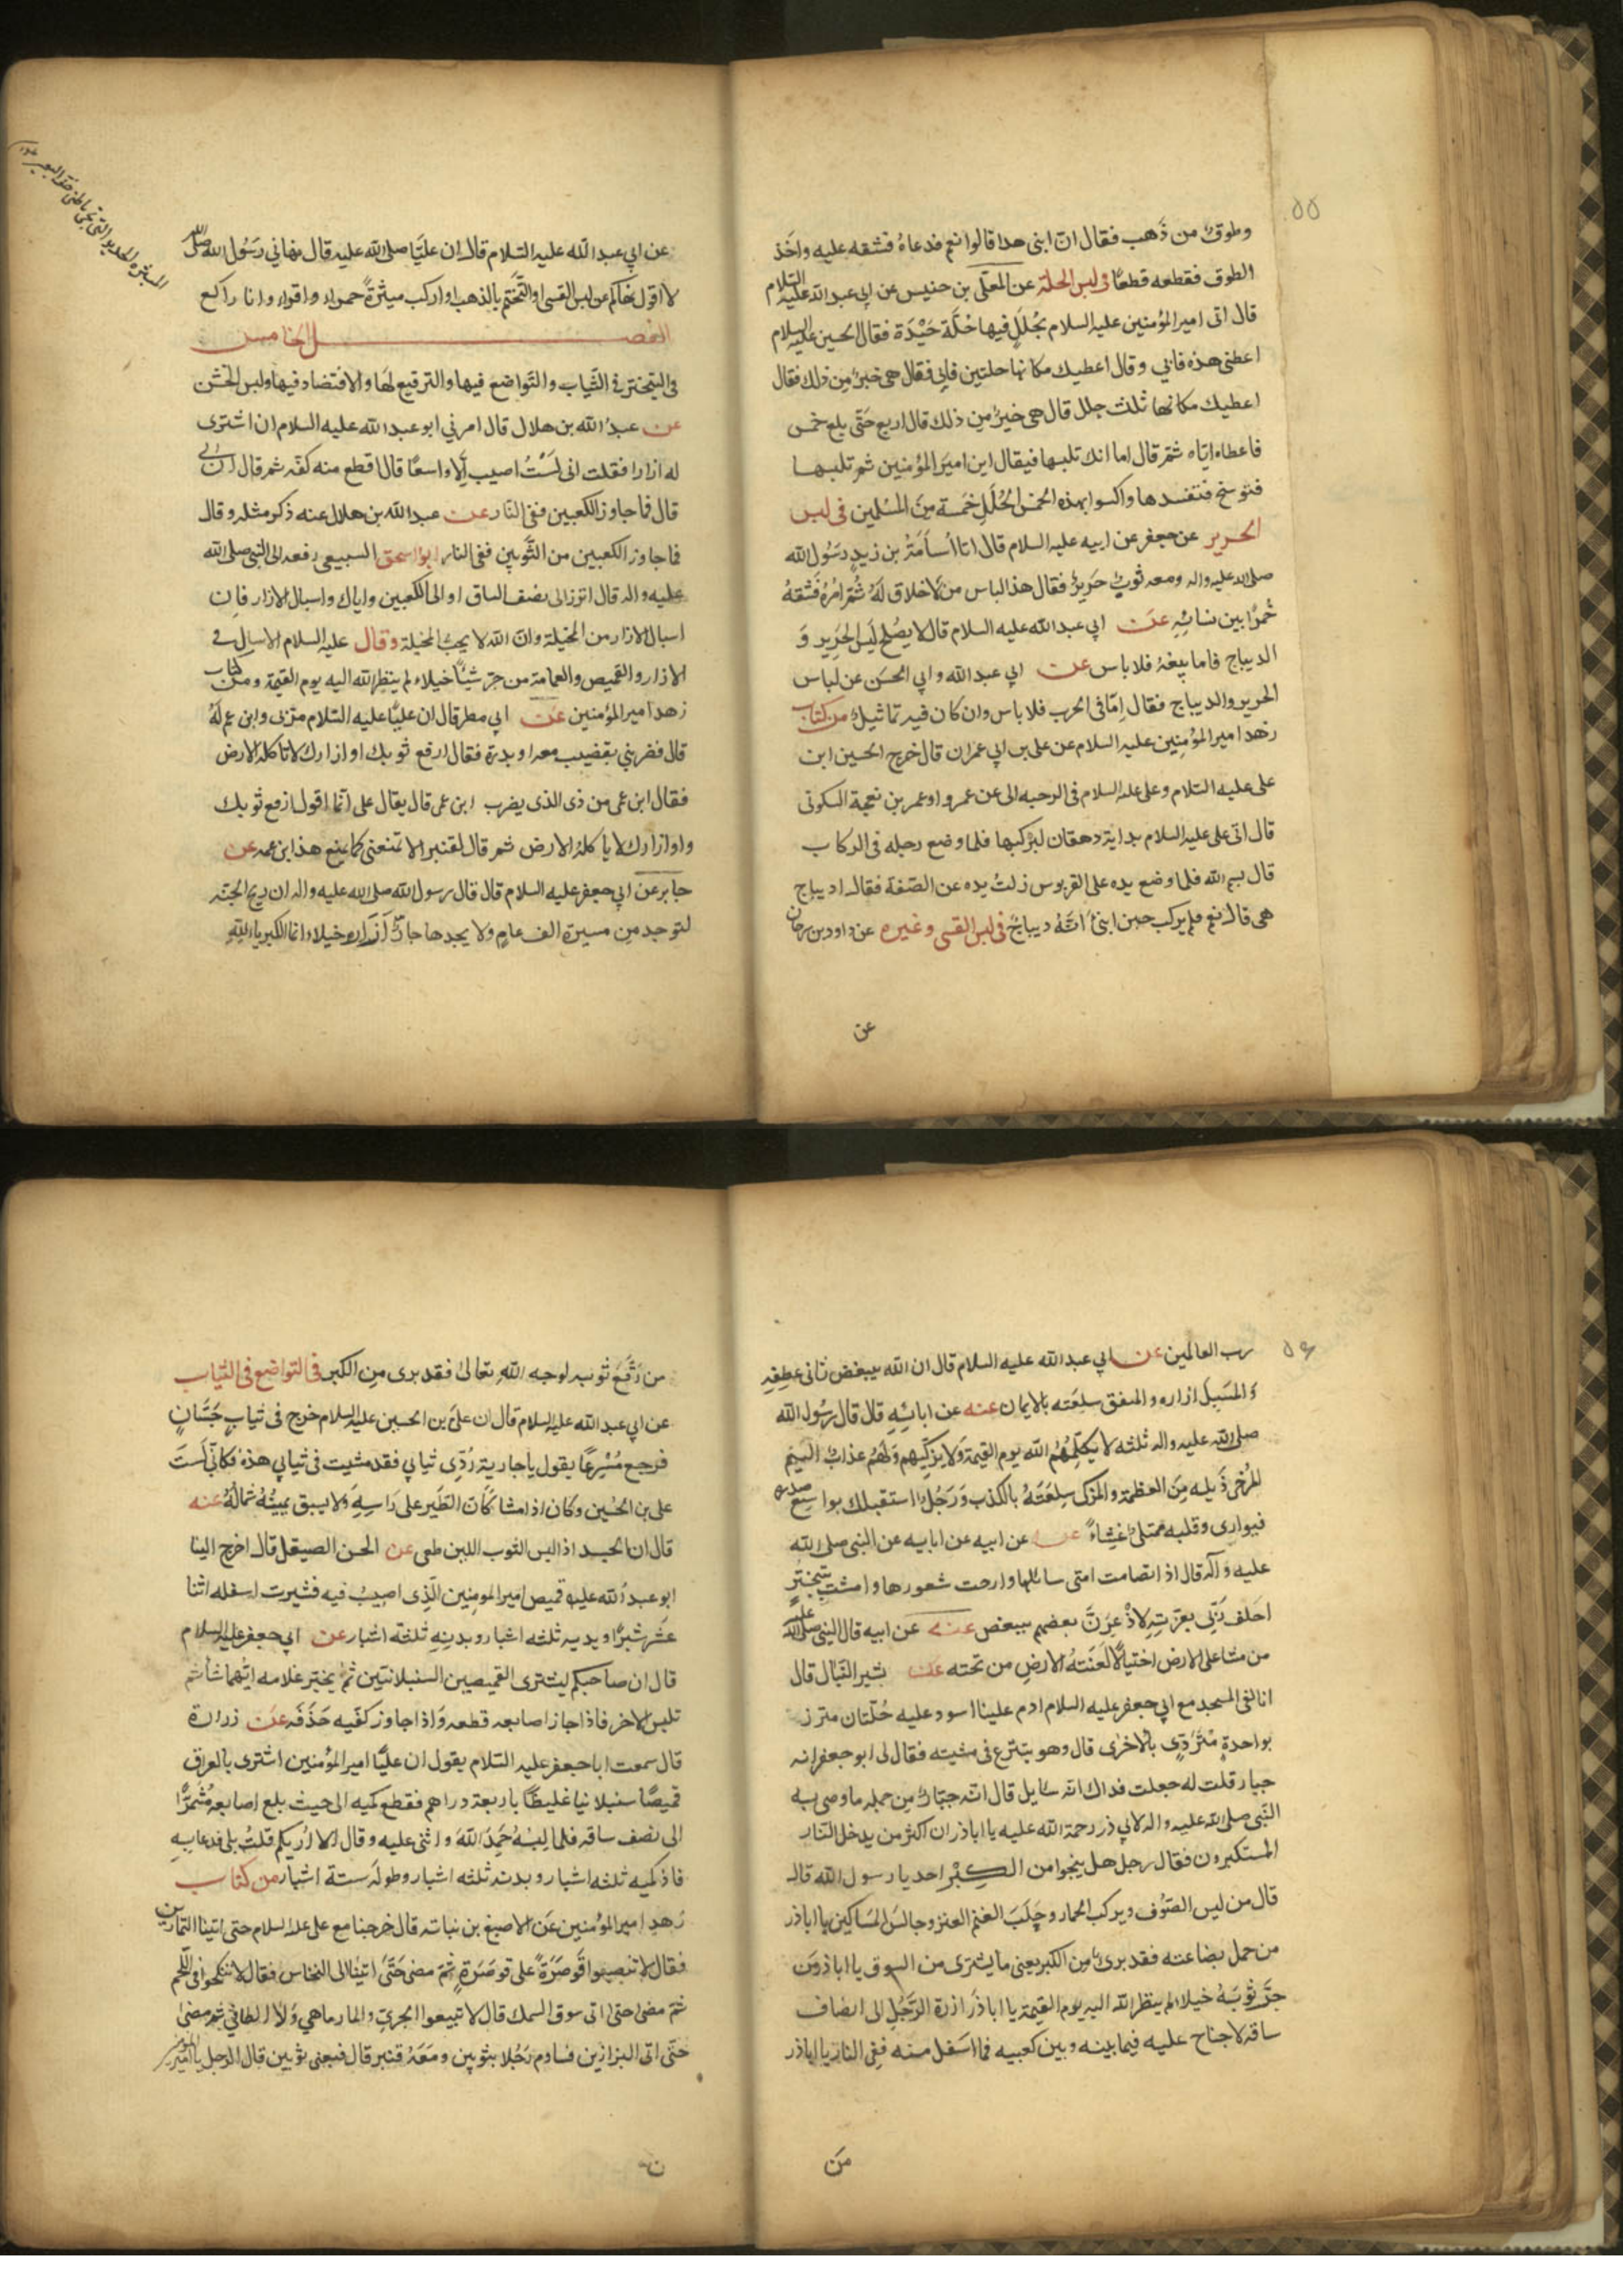 ٥٥
وطوق من ذهب فقال ان ابنی هذا قالوا نعم فدعاه فشقه عليه واخذ
الطوق فقطعه قطعا فی لبس الحلة عن المعلی بن خنيس عن ابی عبد الله عليه السلام
قال اتی امير المؤمنين عليه السلام بحلل فيها حلة جيدة فقال الحسين عليه السلام
اعطنی هذه فابی وقال اعطيك مكانها حلتين فابی فقال هی خير من ذلك فقال
اعطيك مكانها ثلث حلل قال هی خير من ذلك قال اربع حتی بلغ خمس
فاعطاه اياه ثم قال اما انك تلبسها فيقال ابن امير المؤمنين ثم تلبسها
فتوسخ فتفسدها واكسوا بهذه الخمس الحلل خمسة من المسلمين فی لبس
الحرير عن جعفر عن ابيه عليه السلام قال اتا اسامة بن زيد رسول الله
صلی الله عليه واله ومعه ثوب حرير فقال هذا لباس من لا خلاق له ثم امره فشقه
خمرا بين نسائه عن ابی عبد الله عليه السلام قال لا يصلح لبس الحرير و
الديباج فاما بيعه فلا باس عن ابی عبد الله وابی الحسن عن لباس
الحرير والديباج فقال اما فی الحرب فلا باس وان كان فيه تماثيل من كتاب
زهد امير المؤمنين عليه السلام عن علی بن ابی عمران قال خرج الحسين ابن
علی عليه السلام وعلی عليه السلام فی الرحبه الی عن عمرو او عمر بن نعجة السكونی
قال اتی علی عليه السلام بدابة دهقان ليركبها فلما وضع رجله فی الركاب
قال بسم الله فلما وضع يده علی القربوس زلت يده عن الصفة فقال اديباج
هی قال نعم فلم يركب حين انبئ انه ديباج فی لبس القسی وغيره عن داود بن سرحان
عن
عن ابی عبد الله عليه السلام قال ان عليا صلی الله عليه قال نهانی رسول الله صلی الله
لا اقول نهاكم عن لبس القسی او التختم بالذهب او اركب ميثرة حمراء واقراء وانا راكع
الفصل الخامس
فی التبختر فی الثياب والتواضع فيها والترقيع لها والاقتصاد فيها ولبس الخشن
عن عبد الله بن هلال قال امرنی ابو عبد الله عليه السلام ان اشتری
له ازارا فقلت انی لست اصيب الا واسعا قال اقطع منه كفه ثم قال ان ابی
قال فما جاوز الكعبين ففی النار عن عبد الله بن هلال عنه ذكر مثله وقال
فما جاوز الكعبين من الثوبين ففی النار ابو اسحق السبيعی رفعه الی النبی صلی الله
عليه واله قال اتزر الی نصف الساق او الی الكعبين واياك واسبال الازار فان
اسبال الازار من المخيلة وان الله لا يحب المخيلة وقال عليه السلام الاسبال فی
الازار والقميص والعمامة من جر شيئا خيلاء لم ينظر الله اليه يوم القيمة ومن كتاب
زهد امير المؤمنين عن ابی مطر قال ان عليا عليه السلام مر بی وابن عم له
قال فضربنی بقضيب معه او بدرة فقال ارفع ثوبك او ازارك لا تاكله الارض
فقال ابن عمی من ذی الذی يضرب ابن عمی قال يقال علی انما اقول ارفع ثوبك
واو ازارك لا ياكله الارض ثم قال لقنبر الا تمنعنی كما يمنع هذا ابن عمه عن
جابر عن ابی جعفر عليه السلام قال قال رسول الله صلی الله عليه واله ان ريح الجنة
لتوجد من مسيرة الف عام ولا يجدها جار ازاره خيلاء انما الكبرياء لله
٥٦
رب العالمين عن ابی عبد الله عليه السلام قال ان الله يبغض ثانی عطفه
والمسبل ازاره والمنفق سلعته بالايمان عنه عن ابائه قال قال رسول الله
صلی الله عليه واله ثلثه لا يكلمهم الله يوم القيمة ولا يزكيهم ولهم عذاب اليم
المرخی ذيله من العظمة والمزكی سلعته بالكذب ورجل استقبلك بواسع صدره
فيواری وقلبه ممتلئ غشاء عنه عن ابيه عن ابايه عن النبی صلی الله
عليه وآله قال اذا تصامت امتی سائلها وارخت شعورها وامشت تبختر
احلف ربی بعزته لاذعرن بعضهم ببعض عنه عن ابيه قال النبی صلی الله عليه
من مشا علی الارض اختيالا لعنته الارض من تحته عن بشير النبال قال
انا لفی المسجد مع ابی جعفر عليه السلام اذ مر علينا اسود عليه حلتان متزر
بواحدة متردی بالاخری قال وهو يتبرع فی مشيته فقال لی ابو جعفر انه
جبار قلت له جعلت فداك انه سايل قال انه جبار من جمله ما وصی به
النبی صلی الله عليه واله لابی ذر رحمة الله عليه يا اباذر ان اكثر من يدخل النار
المستكبرون فقال رجل هل ينجوا من الكبر احد يا رسول الله قال
قال من لبس الصوف ويركب الحمار وحلب الغنم العنز وجالس المساكين يا اباذر
من حمل بضاعته فقد برئ من الكبر يعنی ما يشتری من السوق يا اباذر ومن
جر ثوبه خيلاء لم ينظر الله اليه يوم القيمة يا اباذر ازرة الرجل الی انصاف
ساقه لا جناح عليه فيما بينه وبين كعبيه فما اسفل منه ففی النار يا اباذر
من
من رقع ثوبه لوجه الله تعالی فقد بری من الكبر فی التواضع فی الثياب
عن ابی عبد الله عليه السلام قال ان علی بن الحسين عليه السلام خرج فی ثياب حسان
فرجع مسرعا يقول يا جارية ردی ثيابی فقد مشيت فی ثيابی هذه فكانی لست
علی بن الحسين وكان اذا مشا كان الطير علی راسه ولا يسبق يمينه شماله عنه
قال ان الجسد اذا لبس الثوب اللين طغی عن الحسن الصيقل قال اخرج الينا
ابو عبد الله عليه قميص امير المومنين الذی اصيب فيه فشبرت اسفله اثنا
عشر شبرا ويديه ثلثه اشبار وبدنه ثلثه اشبار عن ابی جعفر عليه السلام
قال ان صاحبكم ليشتری القميصين السنبلانيين ثم يخير غلامه ايهما شا ثم
تلبس الاخر فاذا جاز اصابعه قطعه واذا جاوز كفيه حذفه عن زرارة
قال سمعت ابا جعفر عليه السلام يقول ان عليا امير المؤمنين اشتری بالعراق
قميصا سنبلانيا غليظا باربعة دراهم فقطع كميه الی حيث بلغ اصابعه مشمرا
الی نصف ساقه فلما لبسه حمد الله واثنی عليه وقال الا اريكم قلت بلی فدعا به
فاذ كميه ثلثه اشبار وبدنه ثلثه اشبار وطوله ستة اشبار من كتاب
زهد امير المؤمنين عن الاصبغ بن نباته قال خرجنا مع علی عليه السلام حتی اتينا التمارين
فقال لا تنصبوا قوصرة علی قوصرة ثم مضی حتی اتينا الی النخاس فقال لا تنكحوا فی اللحم
ثم مضی حتی اتی سوق السمك قال لا تبيعوا الجری والمارماهی ولا الطافی ثم مضی
حتی اتی البزازين فساوم رجلا بثوبين ومعه قنبر قال فبعنی ثوبين قال الرجل يا امير